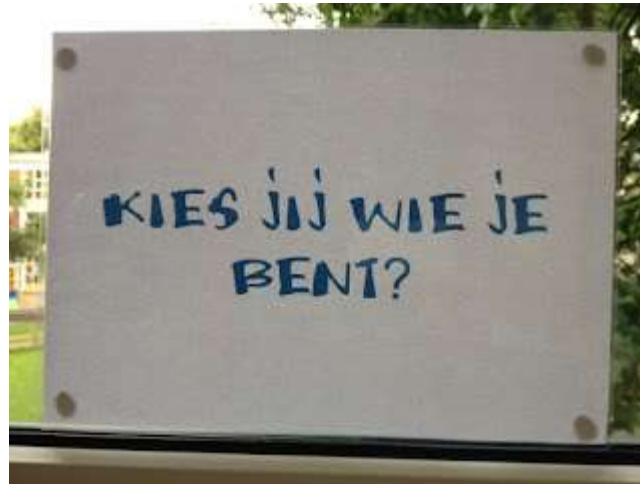 KIES jIj WIE jE
BENT?